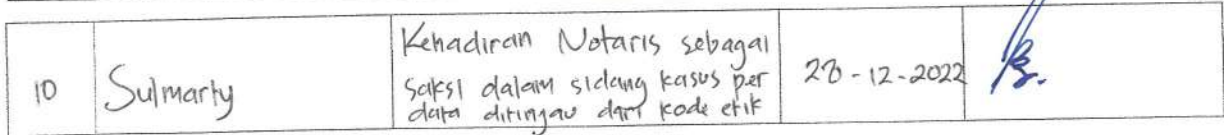 10
Sulmarty
Kehadiran Notaris sebagai
saksi dalam sidang kasus per
data ditinjau dari kode etik
28-12-2022